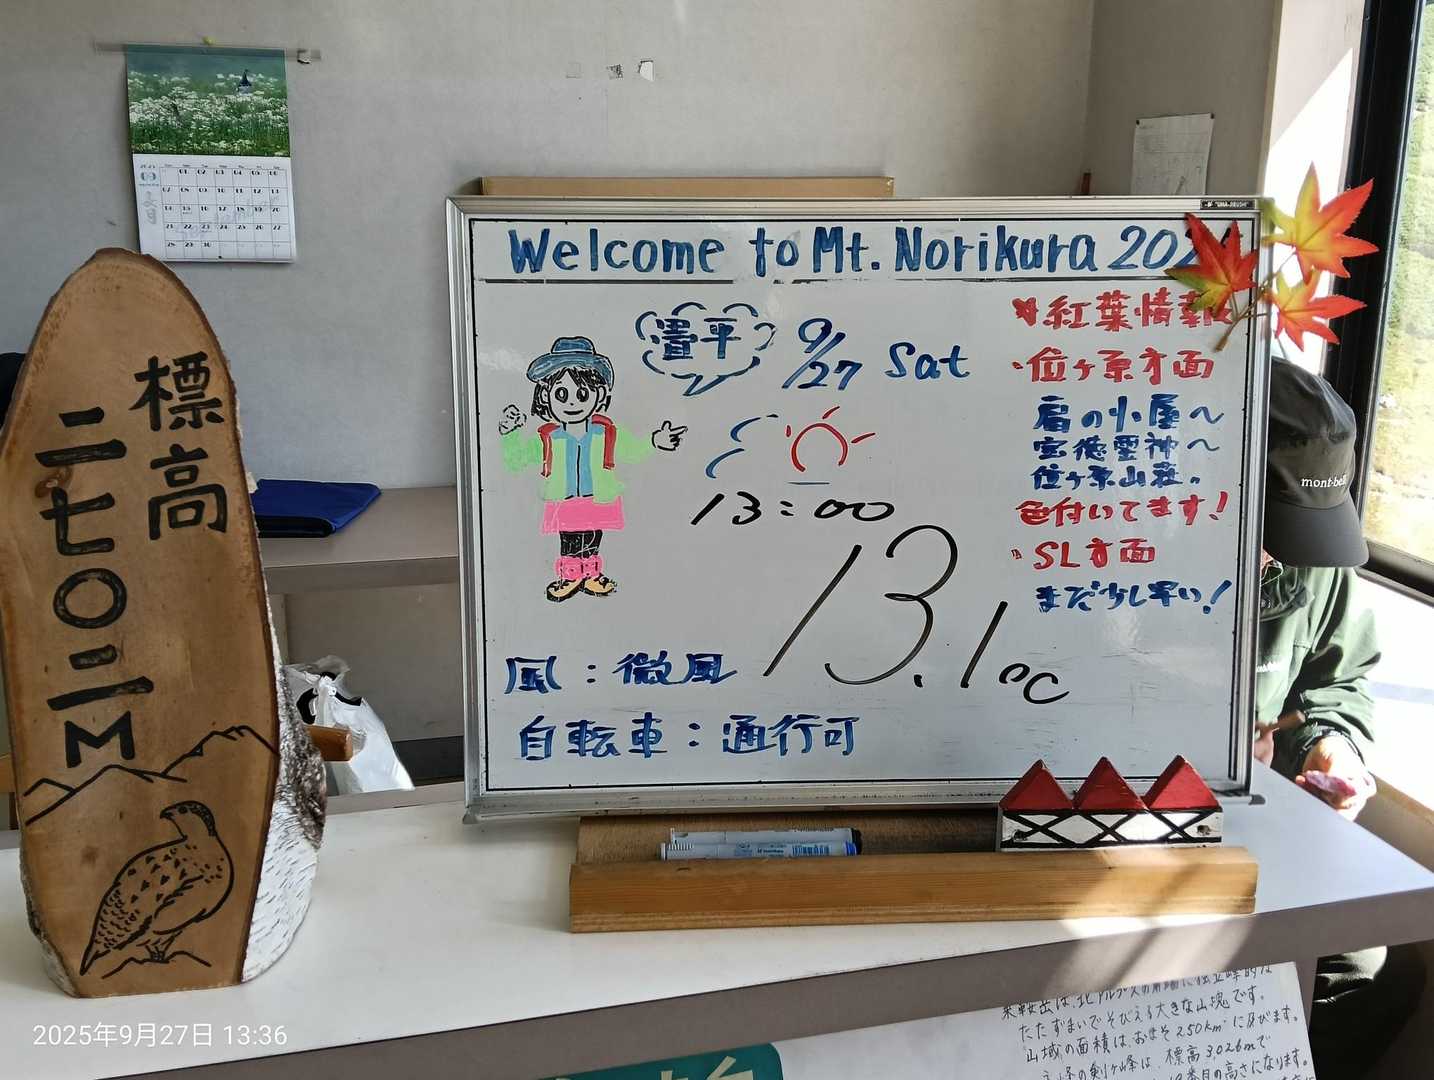 標高
二七〇二M
Welcome to Mt. Norikura 202
畳平
9/27 Sat
13:00
13.1℃
風：微風
自転車：通行可
紅葉情報
・位ヶ原方面
肩の小屋～
宝徳霊神～
位ヶ原山荘。
色付いてます！
・SL方面
まだ少し早い！
mont-bell
たたずまいでそびえる大きな山塊です。
山域の面積は、およそ250km²に及びます。
剣ヶ峰は、標高3,026mで
番目の高さになります。
2025年9月27日 13:36